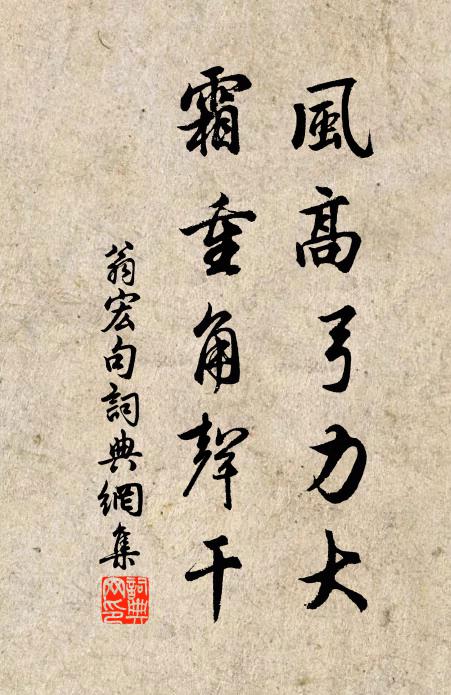 風高弓力大
霜重角聲干
翁宏句詞典網集
詞典
文印